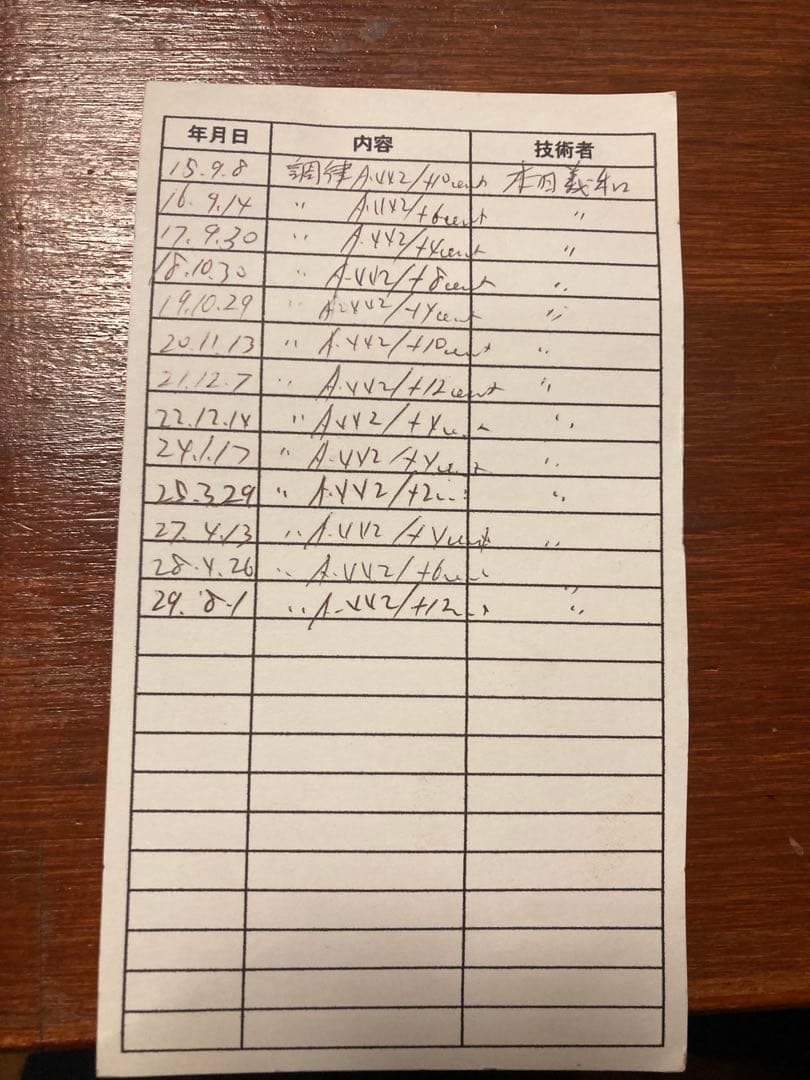 年月日 内容 技術者
15.9.8 調律 A.442/+10cent 本田義和
16.9.14 〃 A.442/+6cent 〃
17.9.30 〃 A.442/+4cent 〃
18.10.30 〃 A.442/+8cent 〃
19.10.29 〃 A=442/+4cent 〃
20.11.13 〃 A.442/+10cent 〃
21.12.7 〃 A.442/+12cent 〃
22.12.14 〃 A.442/+4cent 〃
24.1.17 〃 A.442/+4cent 〃
25.3.29 〃 A.442/+2cent 〃
27.4.13 〃 A.442/+4cent 〃
28.4.26 〃 A.442/+6cent 〃
29.8.1 〃 A.442/+12cent 〃